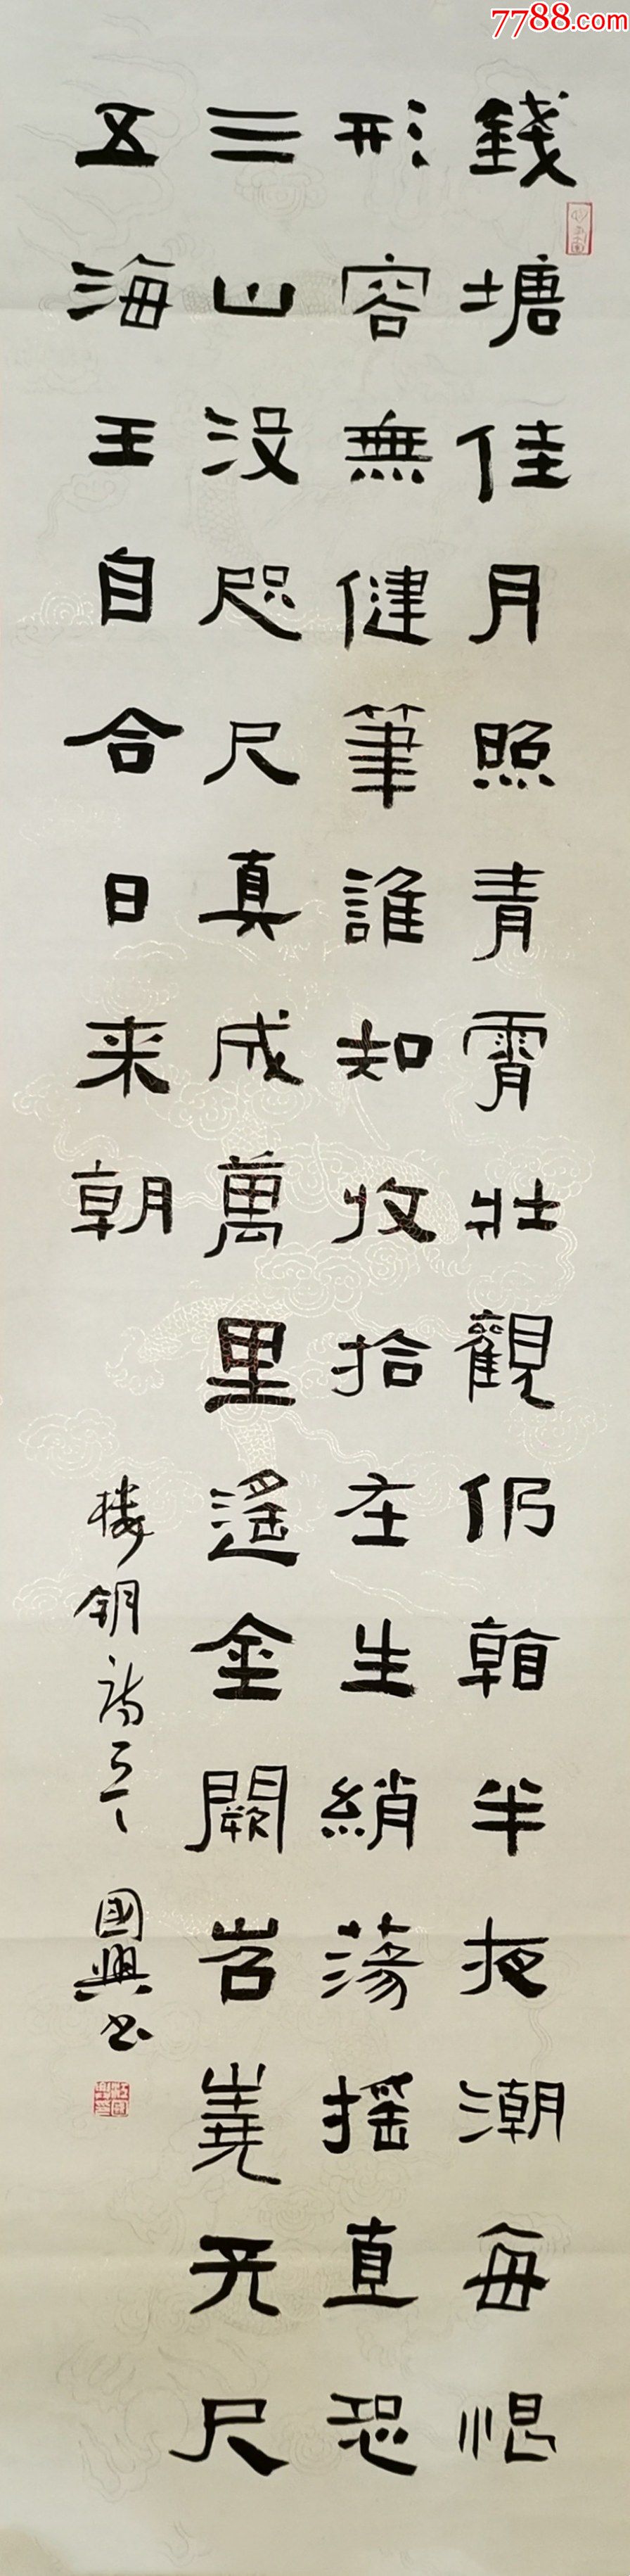 7788.com
錢塘佳月照青霄壯觀仍看半夜潮每恨
形容無健筆誰知收拾在生綃蕩搖直恐
三山没咫尺真成萬里遙金闕岧嶢天尺
五海王自合日来朝
楼钥诗 國興书